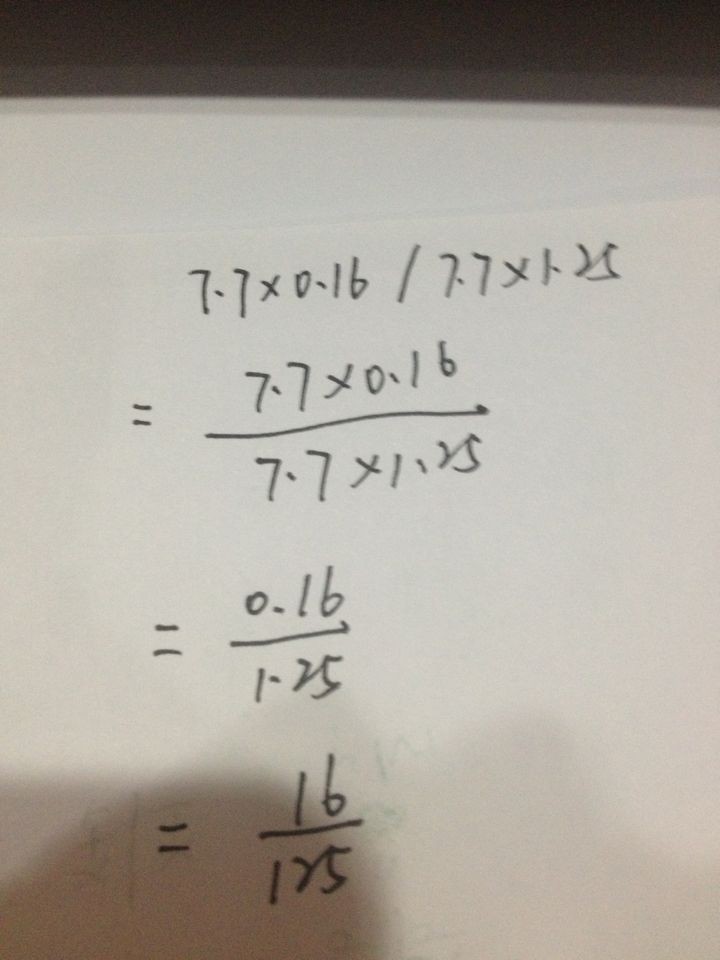 7.7×0.16 / 7.7×1.25
= 7.7×0.16 / 7.7×1.25
= 0.16 / 1.25
= 16 / 125